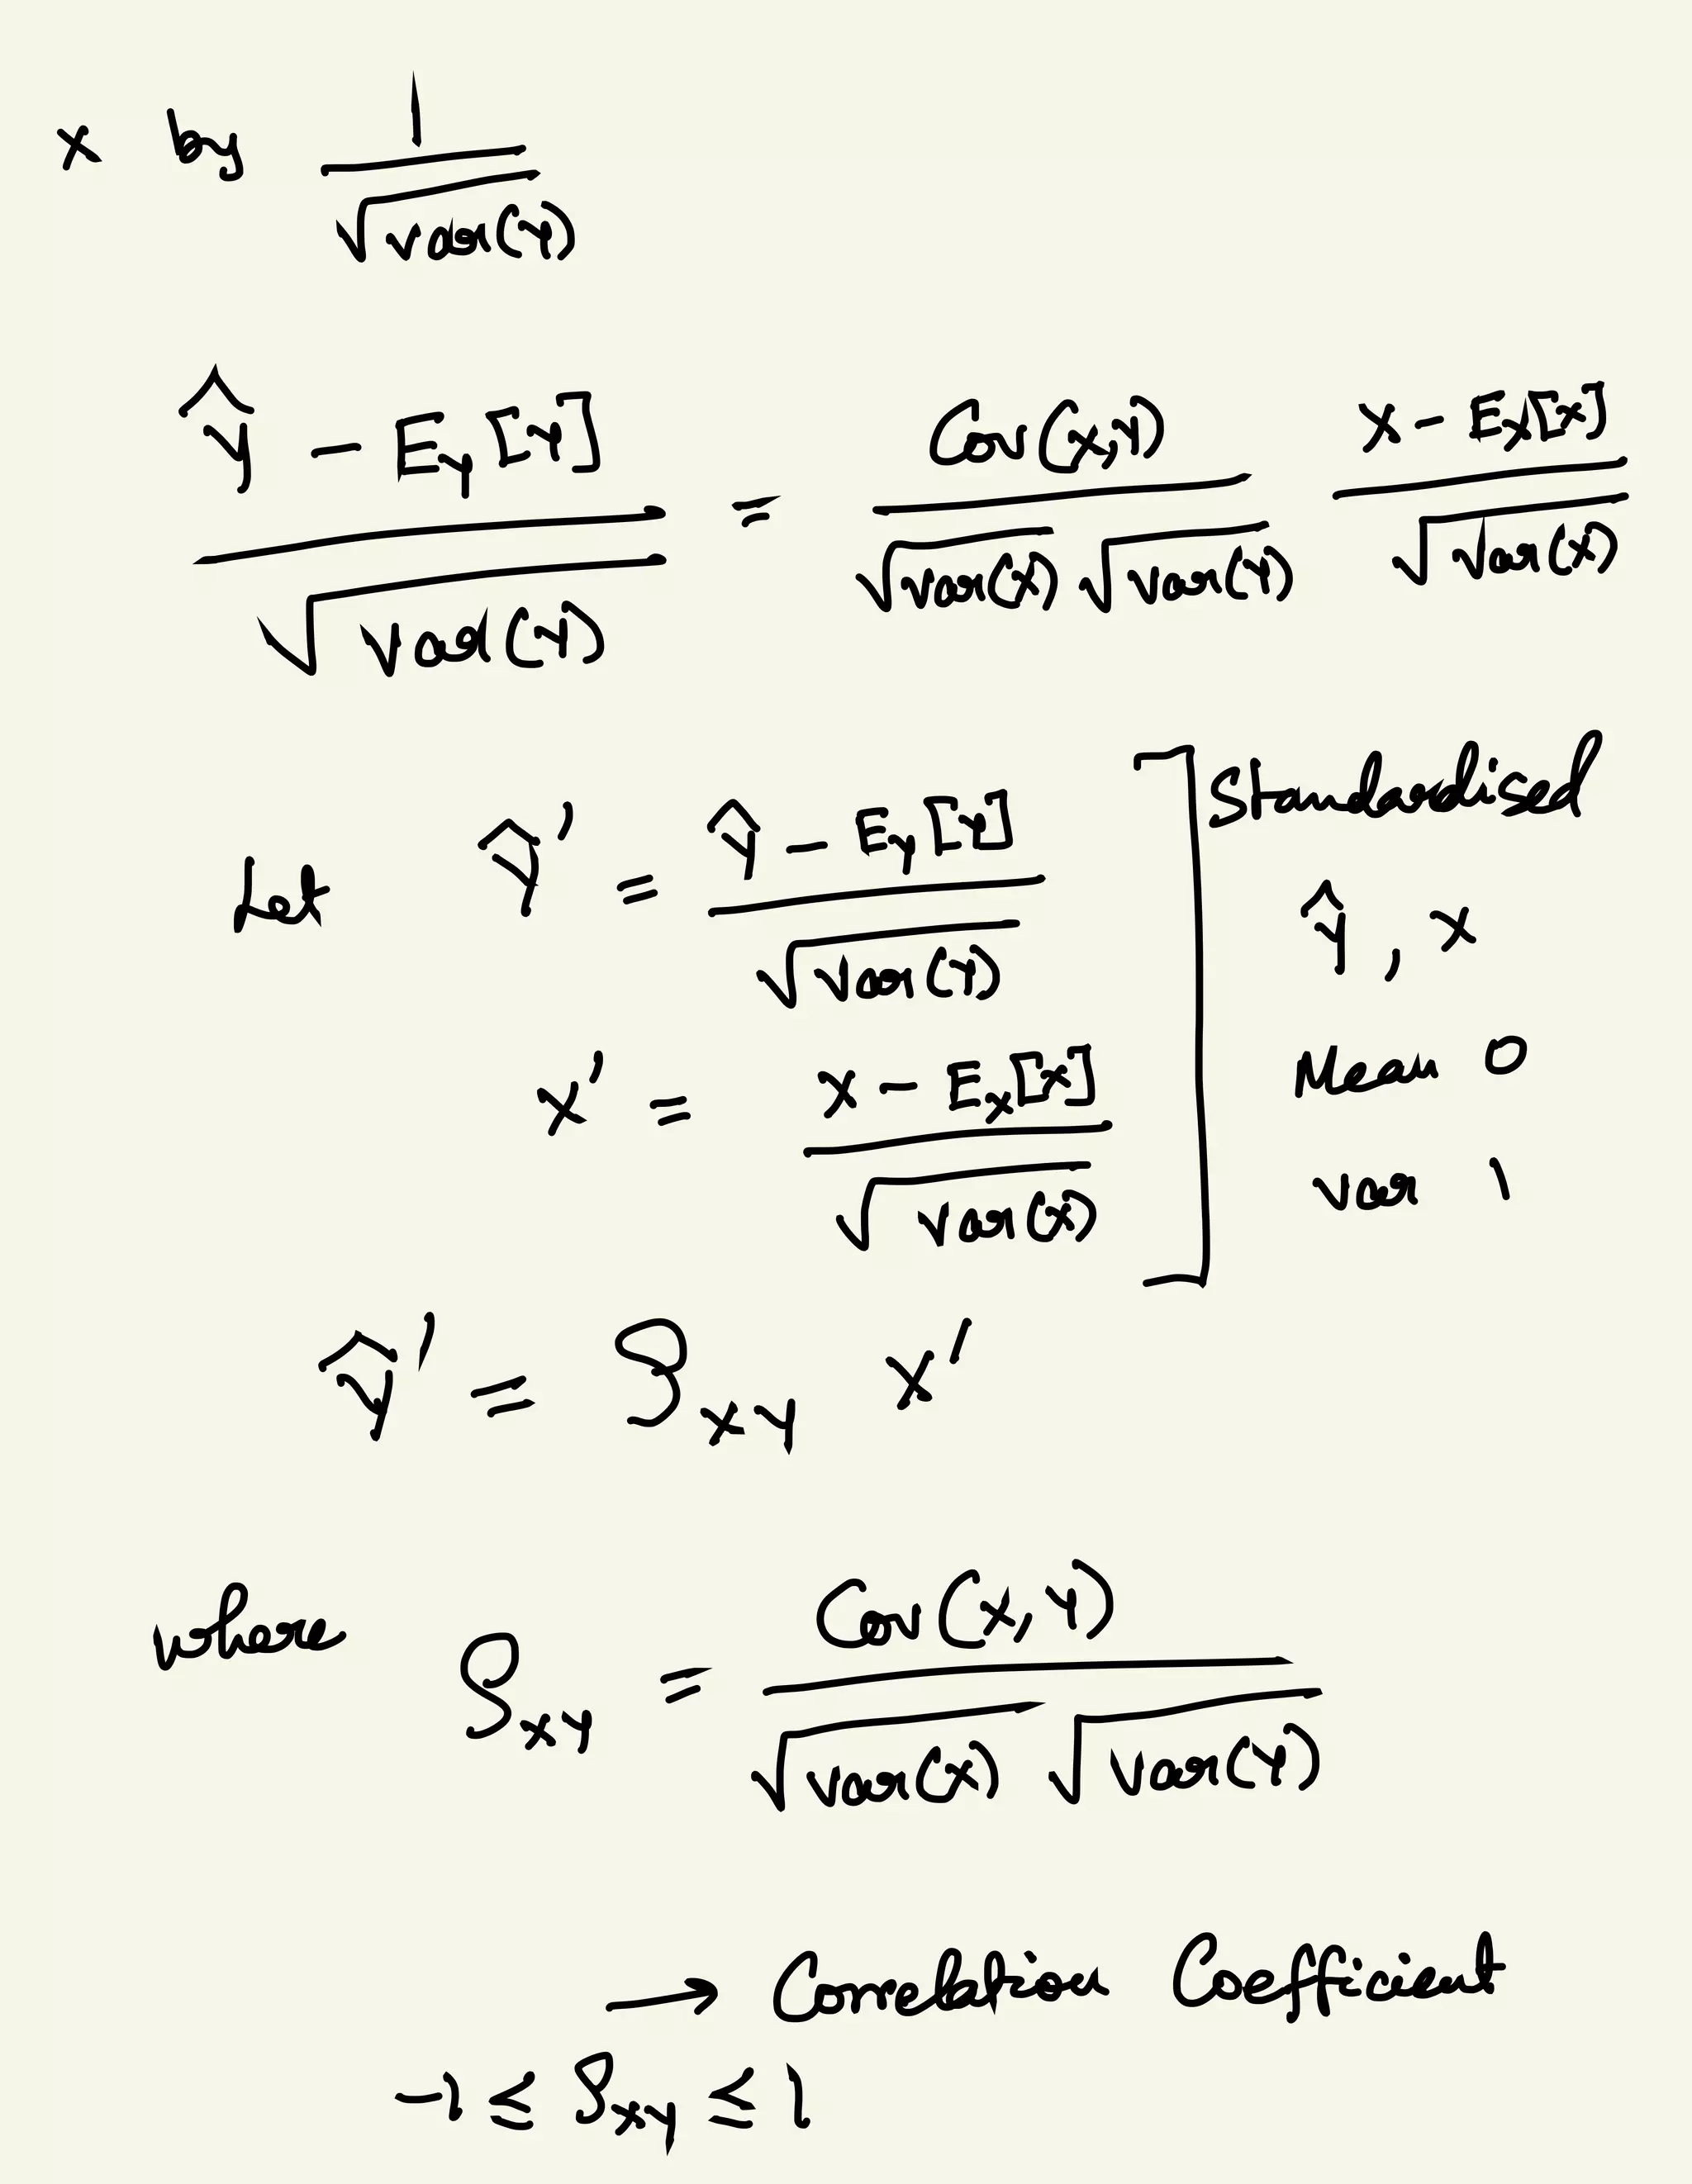 × by 1/√Var(Y)
(Ŷ − E_Y[Y])/√Var(Y) = Cov(X,Y)/(√Var(X) √Var(Y)) (X − E_X[X])/√Var(X)
Let Ŷ' = (Ŷ − E_Y[Y])/√Var(Y)
X' = (X − E_X[X])/√Var(X)
Standardised
Ŷ, X
Mean 0
Var 1
Ŷ' = ρ_XY X'
where ρ_XY = Cov(X,Y)/(√Var(X) √Var(Y))
→ Correlation Coefficient
−1 ≤ ρ_XY ≤ 1